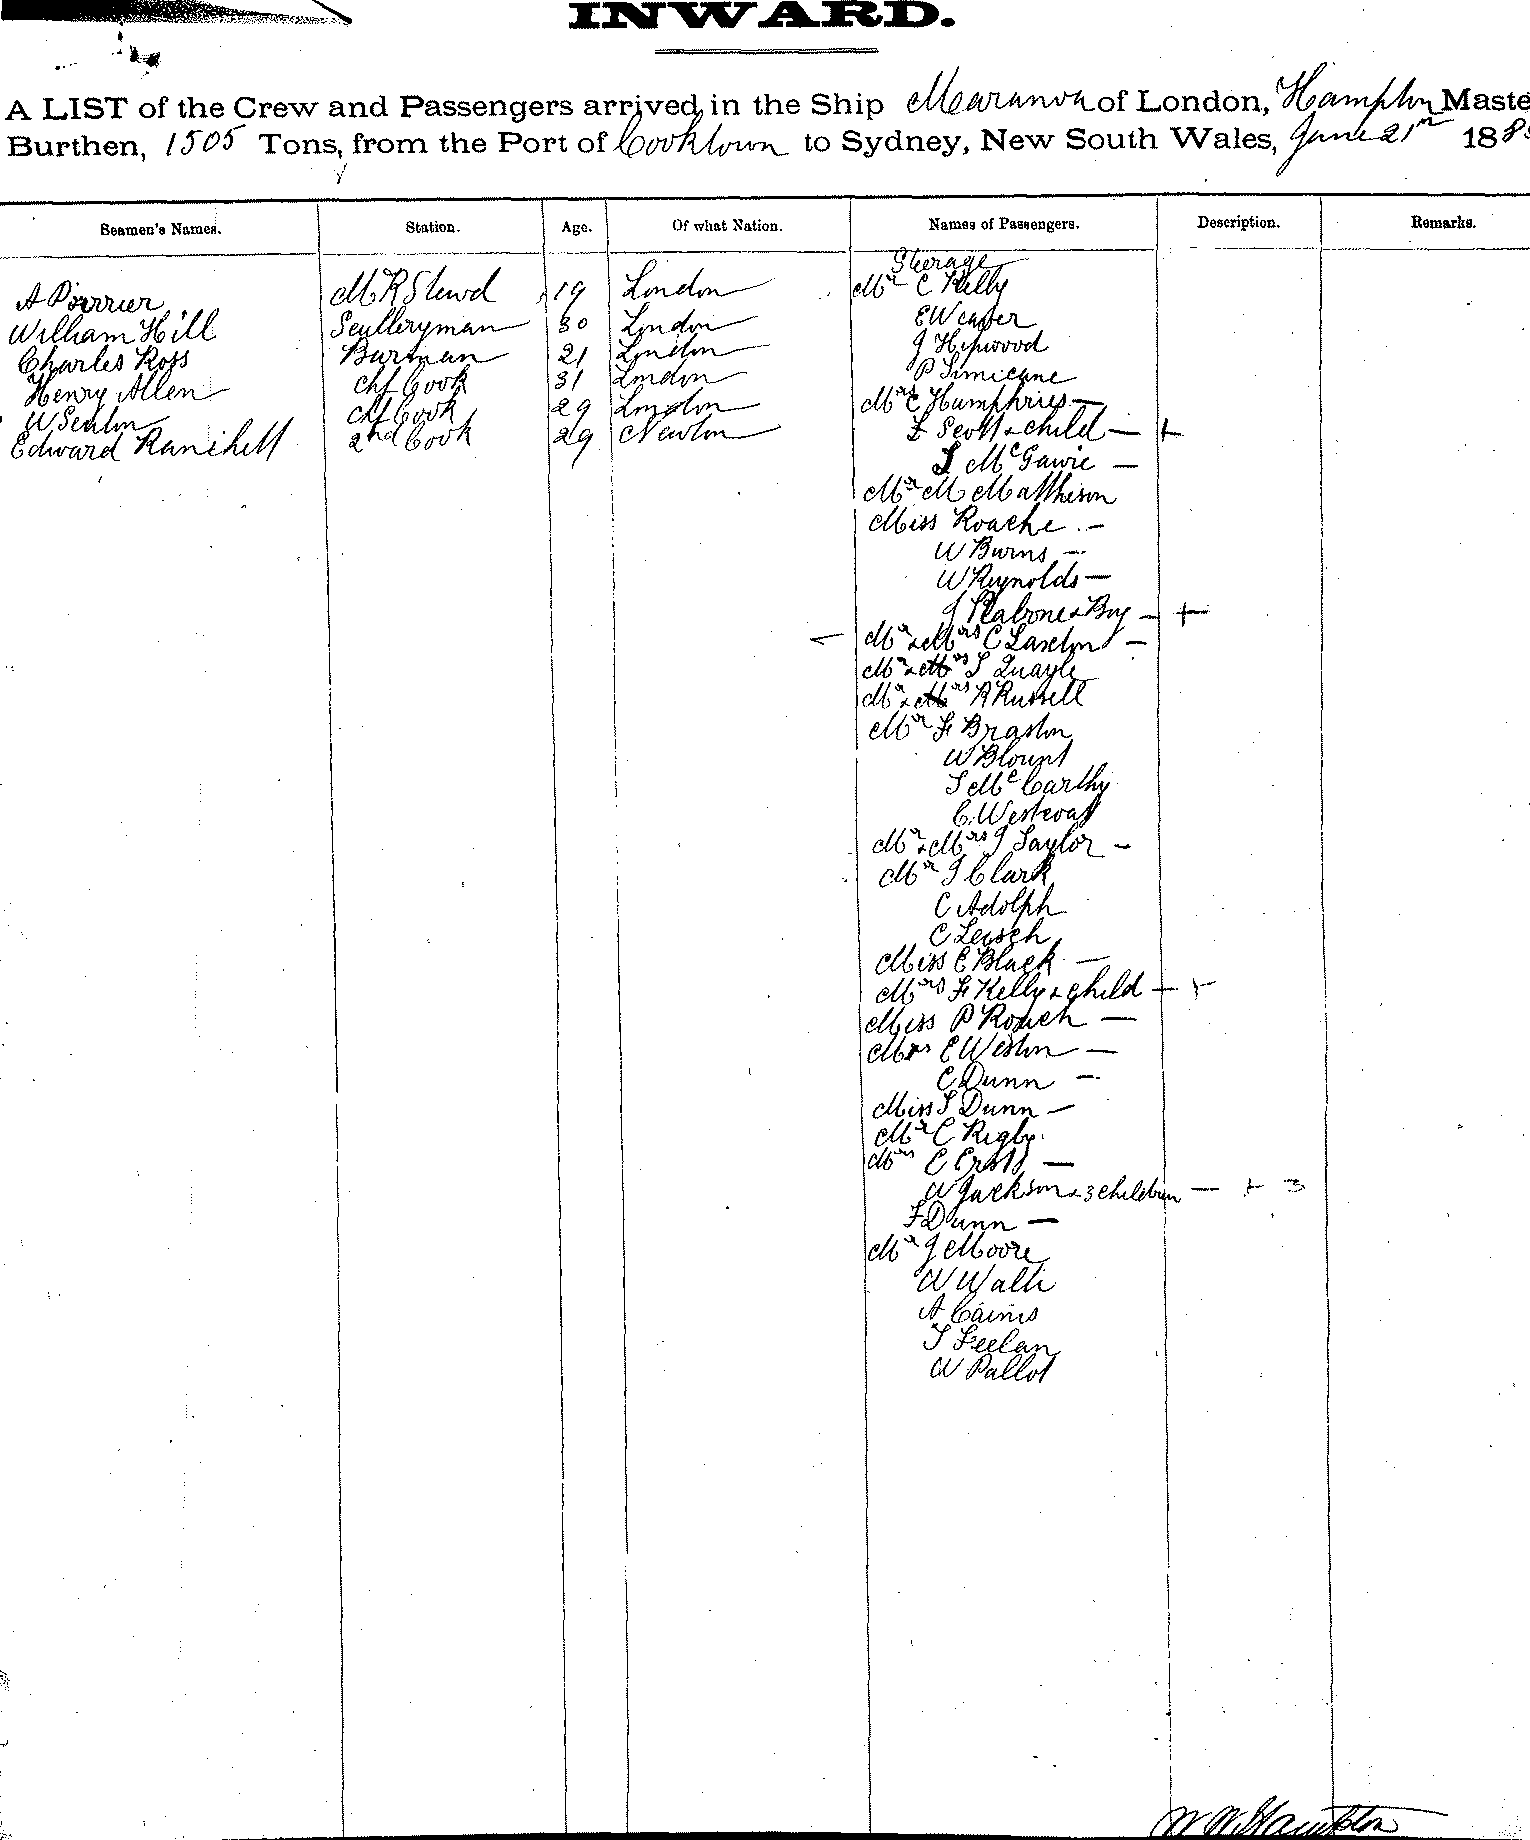 INWARD.
A LIST of the Crew and Passengers arrived, in the Ship Maranoa of London, Hampton Maste
Burthen, 1505 Tons, from the Port of Cooktown to Sydney, New South Wales, June 21st 188
Seamen's Names. Station. Age. Of what Nation. Names of Passengers. Description. Remarks.
Steerage
A Perrier M R Stewd 19 London Mr C Kelly
William Hill Sculleryman 30 London E Weaver
Charles Ross Barman 21 London J Hipwood
Henry Allen Chf Cook 31 London P
W Seaton Chf Cook 29 London Mrs E Humphries —
Edward 2nd Cook 29 Newton Scott & child — +
McGawie —
Mr M Matthison
Miss Roache —
W Burns —
W Reynolds —
J & Boy — +
— Mr & Mrs C Laxton —
Mr & Mrs T Quayle
Mr & Mrs R Russell
Mr F Braston
W Blount
T McCarthy
C. Westcoat
Mr & Mrs J Taylor —
Mr J Clark
C Adolph
C Leisch
Miss E Black —
Mrs F Kelly & child — +
Miss P Roach —
Mrs E Weston —
C Dunn —
Miss T Dunn —
Mr C Rigby
Mrs E Cross —
W Jackson & 3 children — + 3
F Dunn —
Mr J Moore
W Walli
A Cairns
T Feelan
W Pallot
W W Hampton